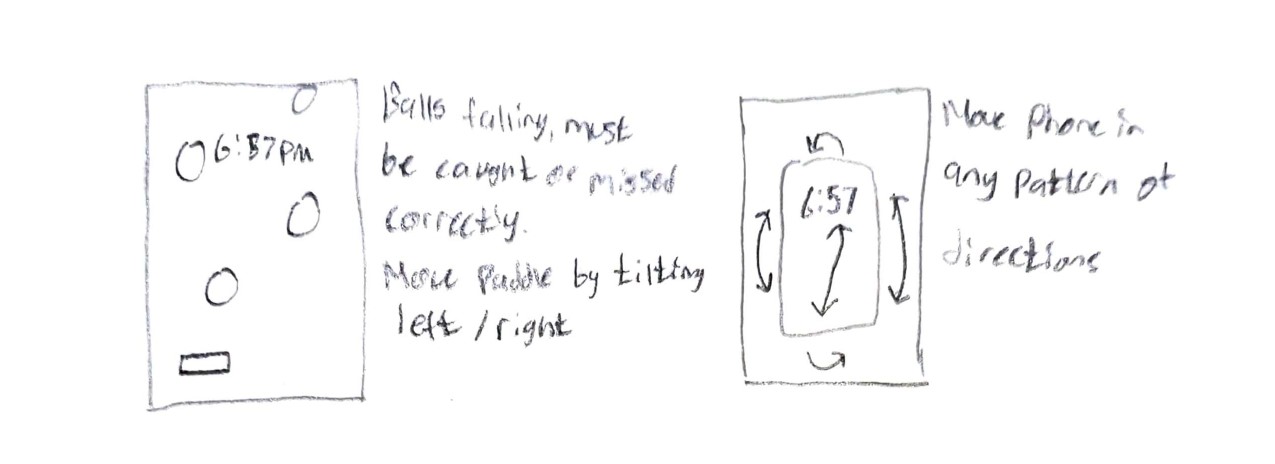 6:57PM
Balls falling, must
be caught or missed
correctly.
Move Paddle by tilting
left / right
6:57
Move Phone in
any pattern of
directions